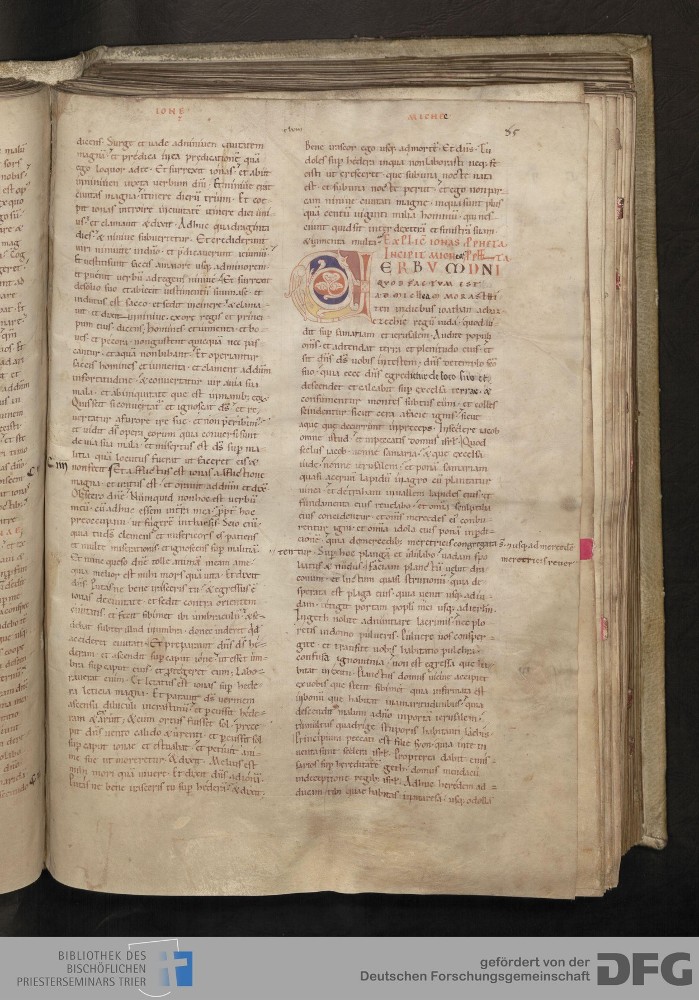 IONE
MICHEE
85
dicens. Surge et uade adniniuen ciuitatem
magnā· et predica inea predicationē quā
ego loquor adte. Et surrexit ionas et abiit
inniniuen iuxta uerbum dnī· Et niniue erat
ciuitas magna itinere dierū trium. Et coe-
pit ionas introire inciuitatē itinere diei uni
us et clamauit & dixit. Adhuc quadraginta
dies & niniue subuertetur. Et crediderunt
uiri niniuite in dnō· et p̄dicauerunt ieiuniū
Et uestiti sunt saccis amaiore usq; adminorem
et puenit uerbū adregem niniue· Et surrexit
desolio suo et abiecit uestimentū suum ase· et
indutus est sacco et sedit incinere & clama-
uit et dixit inniniue. exore regis et princi-
pum eius dicens. homines et iumenta et bo-
ues et pecora nongustent quicquā nec pas
cantur· et aquā nonbibant. Et operiantur
saccis homines et iumenta· et clament addnm
infortitudine· & conuertatur uir auia sua
mala· et abiniquitate que est inmanib; eoꝝ
Quis scit si conuertat et ignoscat ds̄· et re
uertatur afurore ire sue· et non peribim;
et uidit ds̄ opera eorum quia conuersi sunt
de uia sua mala· et misertus est ds̄ sup ma
litia quā locutus fuerat ut faceret eis &
nonfecit Et afflictus est ionas afflictione
magna· et iratus est· et orauit addnm et dix̄
Obsecro dnē. Numquid nonhoc est uerbū
meū cū adhuc essem interra mea· ppt̄ hoc
preoccupaui ut fugerē intharsis. Scio enī
quia tu ds̄ clemens et misericors es patiens
et multe miserationis· et ignoscens sup malitiā
Et nunc queso dnē tolle animā meam ame
quia melior est mihi mors quā uita. Et dixit
dns̄. Putas ne bene irasceris tu· & egressus ē
ionas deciuitate· et sedit contra orientem
ciuitatis· et fecit sibimet ibi umbraculū & se-
debat subter illud inumbra· donec uideret qd
accideret ciuitati· Et preparauit dns̄ ds̄ he-
deram· et ascendit sup caput ione· ut esset um-
bra sup caput eius· et protegeret eum· Labo-
rauerat enim. Et letatus est ionas sup hede-
ra leticia magna· Et parauit ds̄ uermem
ascensu diluculi incrastinū· et percussit hede-
ram & aruit· & cum ortus fuisset sol· prece-
pit dns̄ uento calido & urenti· et percussit sol
sup caput ionae et estuabat· et petiuit ani-
me sue ut moreretur· & dixit. Melius est
mihi mori quā uiuere. Et dixit dns̄ adionā.
Putas ne bene irasceris tu sup hederā· & dixit.
Bene irascor ego usq; admortē· Et dns̄. Tu
doles sup hedera inqua nonlaborasti neq; fe
cisti ut cresceret· que subuna nocte nata
est· et subuna nocte periit· et ego nonpar-
cam niniue ciuitati magne· inqua sunt plus
quā centū uiginti milia hominū· qui nes-
ciunt quid sit inter dexterā et sinistrā suam·
& iumenta multa. EXPLIC IONAS PPHETA.
INCIPIT MICHEAS PPHETA
ERBVM DNI
QVOD FACTVM EST
AD MICHEAM MORASTHI
TEN indiebus ioathan achaz
ezechie regū iuda· quod ui
dit sup samariam et ierusalem· Audite populi
oms̄· et adtendat terra et plenitudo eius· et
sit dns̄ ds̄ uobis intestem· dns̄ detemplo sc̄o
suo· quia ecce dns̄ egredietur de loco suo et
descendet et calcabit sup excelsa terrae· &
consumentur montes subtus eum· et colles
scindentur sicut cera afacie ignis· sicut
aque que decurrunt inpreceps· Inscelere iacob
omne istud· et inpeccatis domus isrl̄· Quod
scelus iacob· nonne samaria· & que excelsa
iude· nonne ierusalem· et ponā samariam
quasi aceruū lapidū inagro cū plantatur
uinea· et detraham inuallem lapides eius· et
fundamenta eius reuelabo· et omnia sculptilia
eius concidentur· et oms̄ mercedes ei͛ combu-
rentur igni· et omnia idola eius ponā inpdi-
tionē· quia demercedib; meretricis congregata s̄· usq; ad mercedē
meretricis reuer
tentur· Sup hoc plangā et ululabo· uadam spo
liatus & nudus· Faciam planctū uelut dra-
conum· et luctum quasi strutionū· quia de
sperata est plaga eius· quia uenit usq; adiu-
dam· tetigit portam popli mei usq; adierlm̄·
Ingeth nolite adnuntiare lacrimis ne plo
retis· indomo pulueris puluere uos consper-
gite· et transite uobis habitatio pulchra·
confusa ignominia· non est egressa que ha-
bitat inexitu· Planctus domus uicine accipiet
exuobis que stetit sibimet· quia infirmata est
inbonū que habitat inamaritudinibus· quia
descendit malum adnō inportā ierusalem·
tumultus quadrige stuporis habitanti lachis·
Principium peccati est filie syon· quia inte in
uenta sunt scelera isrl̄· Propterea dabit emis-
sarios sup hereditatē geth· domus mendacii
indeceptionē regib; isrl̄· Adhuc heredem ad-
ducam tibi que habitas inmaresa· usq; odolla
BIBLIOTHEK DES
BISCHÖFLICHEN
PRIESTERSEMINARS TRIER
gefördert von der
Deutschen Forschungsgemeinschaft
DFG